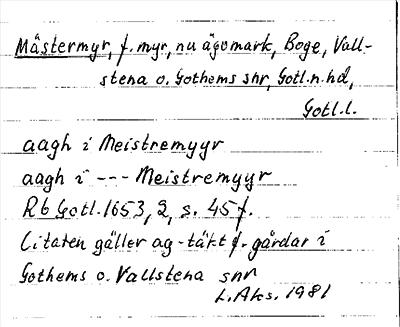 Mästermyr, f. myr, nu ägomark, Boge, Vall-
stena o. Gothems snr, Gotl. n. hd,
Gotl. l.
aagh i Meistremyyr
aagh i --- Meistremyyr
Rb Gotl. 1653, 2, s. 45 f.
Citaten gäller ag-täkt f. gårdar i
Gothems o. Vallstena snr
L. Aks. 1981